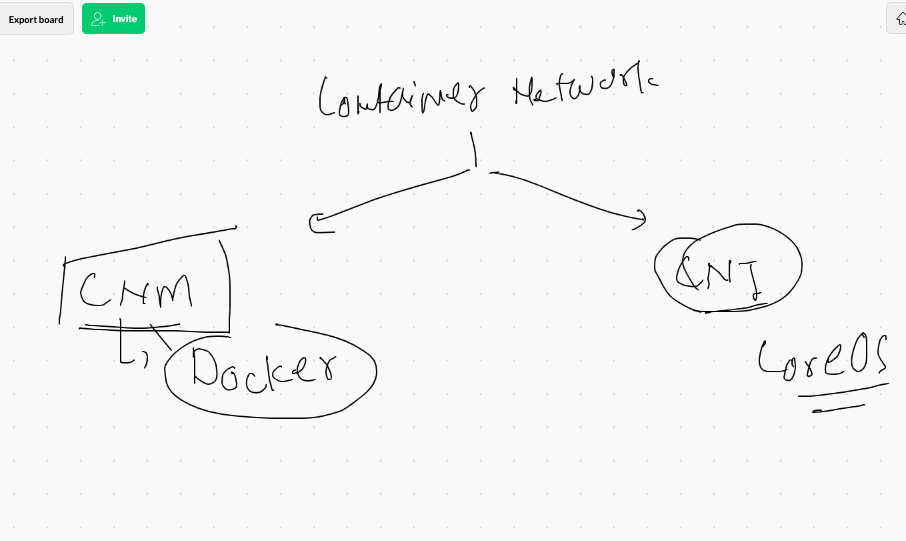 Export board
Invite
Container Network
CNM
CNI
Docker
CoreOS